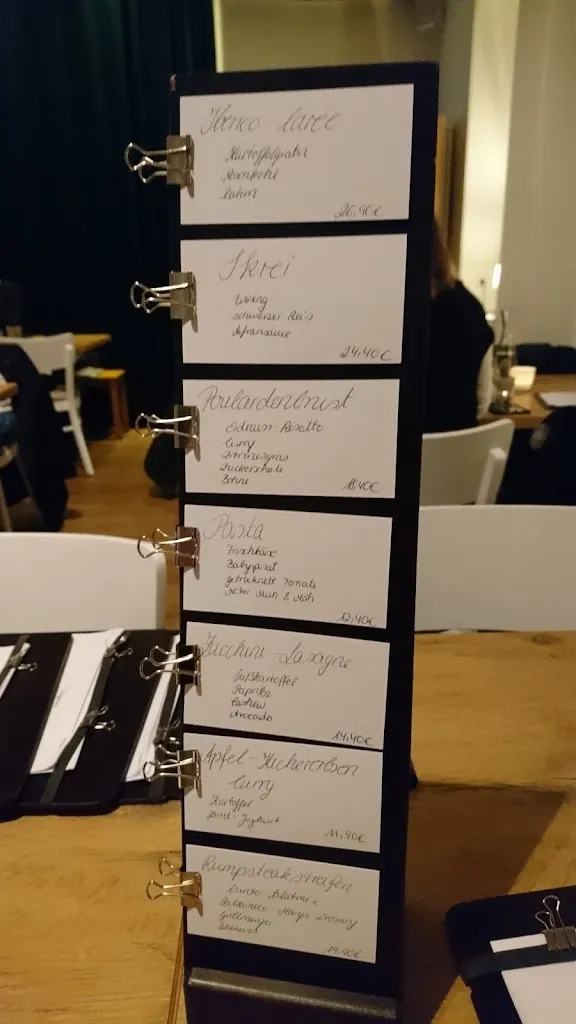 Iberico-Caree
Kartoffelgratin
Rosenkohl
Rahm
26,90€
Skrei
Wirsing
schwarzer Reis
Safransauce
24,40€
Poulardenbrust
Erdnuss-Risotto
Curry
Zitronengras
Zuckerschote
Bohne
18,40€
Pasta
Frischkäse
Babyspinat
getrocknete Tomate
12,40€
Zucchini-Lasagne
Süßkartoffel
Paprika
Cashew
Avocado
14,40€
Apfel-Kichererbsen-
Curry
Kartoffel
Minz-Joghurt
11,90€
Rumpsteakstreifen
bunter Salatmix
Balsamico Mango Dressing
19,90€